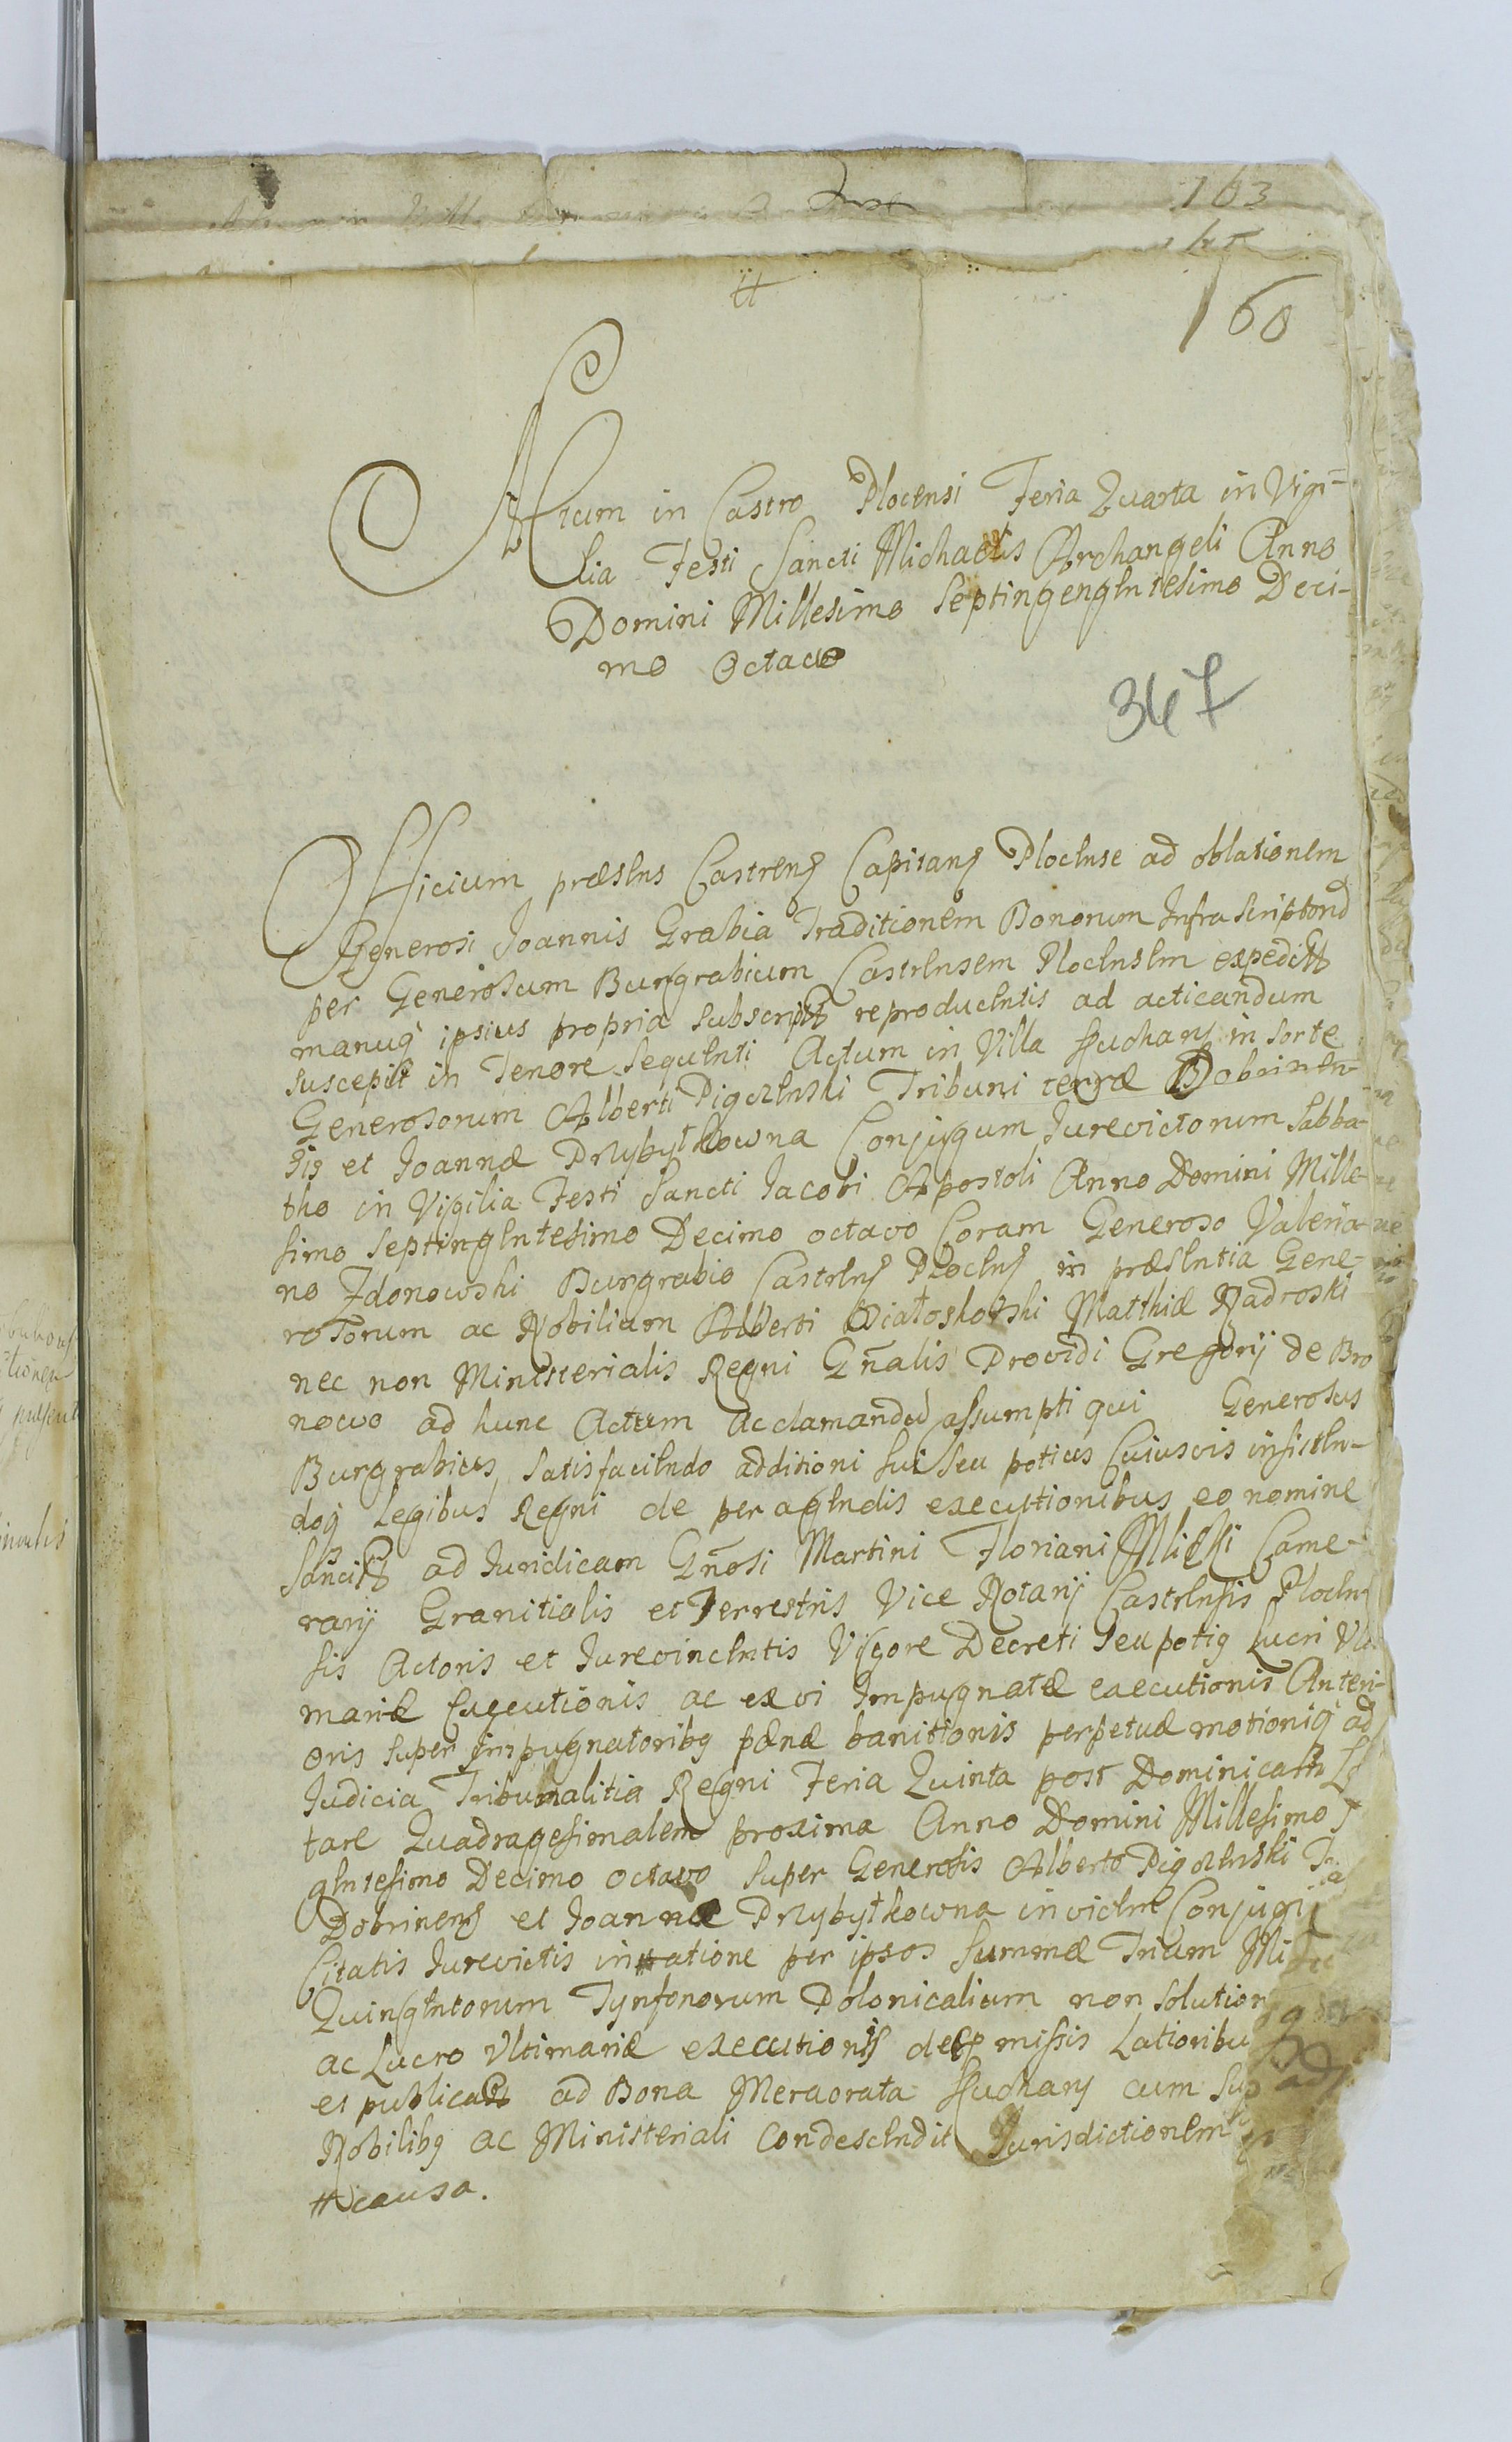 163
160
Actum in Castro Plocensi Feria Quarta in Vigi=
lia Festi Sancti Michaelis Archangeli Anno
Domini Millesimo Septingengentesimo Deci-
mo Octavo
347
Officium præsens Castrens Capitans Plocense ad oblationem
Generosi Joannis Grabia Traditionem Bonorum Infra Scriptord
per Generosum Burgrabium Castrensem Plocensem expeditt
manuq ipsius propria subscriptt reproducentis ad acticandum
suscepit in Tenore Sequenti Actum in Villa in Sorte
Generosorum Alberti Pigczenski Tribuni terræ Dobrinen-
sis et Joannæ Przybytkowna Conjugum Jurevictorum Sabba-
tho in Vigilia Festi Sancti Jacobi Apostoli Anno Domini Mille-
simo Septingentesimo Decimo octavo Coram Generoso Valeria-
no Zdonowski Burgrabio Castrens Plocens in præsentia Gene-
rosorum ac Nobilium Alberti Matthiæ Nadroski
nec non Ministerialis Regni Gnalis Providi Gregorij de Bro
nowo ad hunc Actum Acclamandu assumpti qui Generosus
Burgrabius Satisfaciendo additioni sui seu potius Cuiusvis insisten-
doq Legibus Regni de peragendis executionibus eo nomine
Sancitt ad Juridicam Gnosi Martini Floriani Milski Came-
rarij Granitialis et Terrestris Vice Notarij Castrensis Plocen
sis Actoris et Jurevincentis Vigore Decreti Seu potiq Lucri Vlti
mariæ Executionis ac ex vi Impugnatæ executionis Anteri-
oris super impugnatoribq pænæ banitionis perpetuæ motionisq ad
Judicia Tribunalitia Regni Feria Quinta post Dominicam Læ
tare Quadragesimalem proxima Anno Domini Millesimo
gentesimo Decimo octavo super Generosis Alberto Pigczenski
Dobrinens et Joannæ Przybytkowna invicem Conjugi
Citatis Jurevictis in ratione per ipsos Summæ Trium Mi
Quingentorum Tynfonorum Polonicalium non solution
ac Lucro Vltimariæ executionis missis Latioribu
et publicatt ad Bona Meraorata cum
Nobilibq ac Ministeriali Condescendit Jurisdictionem
causa.